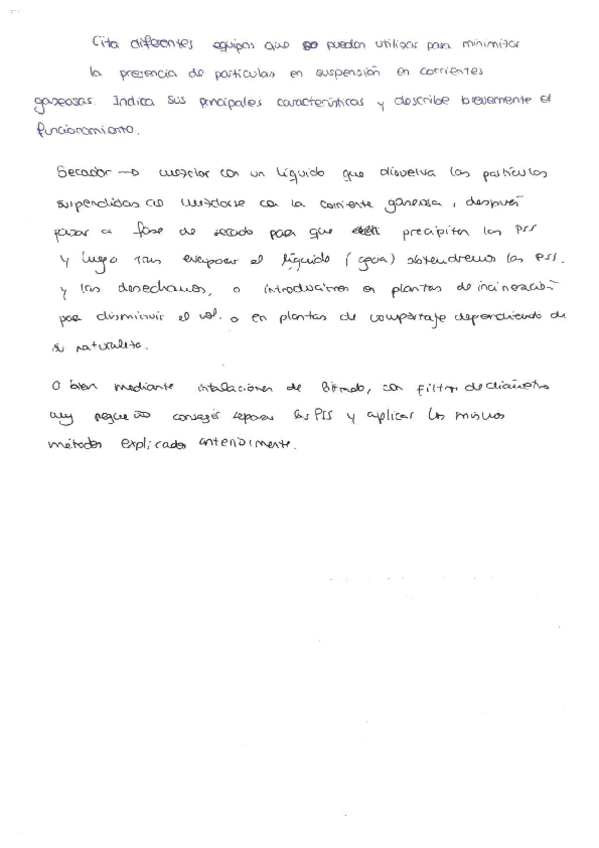 Cita diferentes equipos que se pueden utilizar para minimizar
la presencia de partículas en suspensión en corrientes
gaseosas. Indica sus principales características y describe brevemente el
funcionamiento.
Secador → mezclar con un líquido que disuelva las partículas
suspendidas al mezclarse con la corriente gaseosa, después
pasar a fase de secado para que precipiten las PSS
y luego tras evaporar el líquido (gas) obtendremos las PSS.
y las desechamos, o introducimos en plantas de incineración
para disminuir el vol. o en plantas de compostaje dependiendo de
su naturaleza.
O bien mediante instalaciones de filtrado, con filtros de diámetro
muy pequeño conseguir separar las PSS y aplicar los mismos
métodos explicados anteriormente.